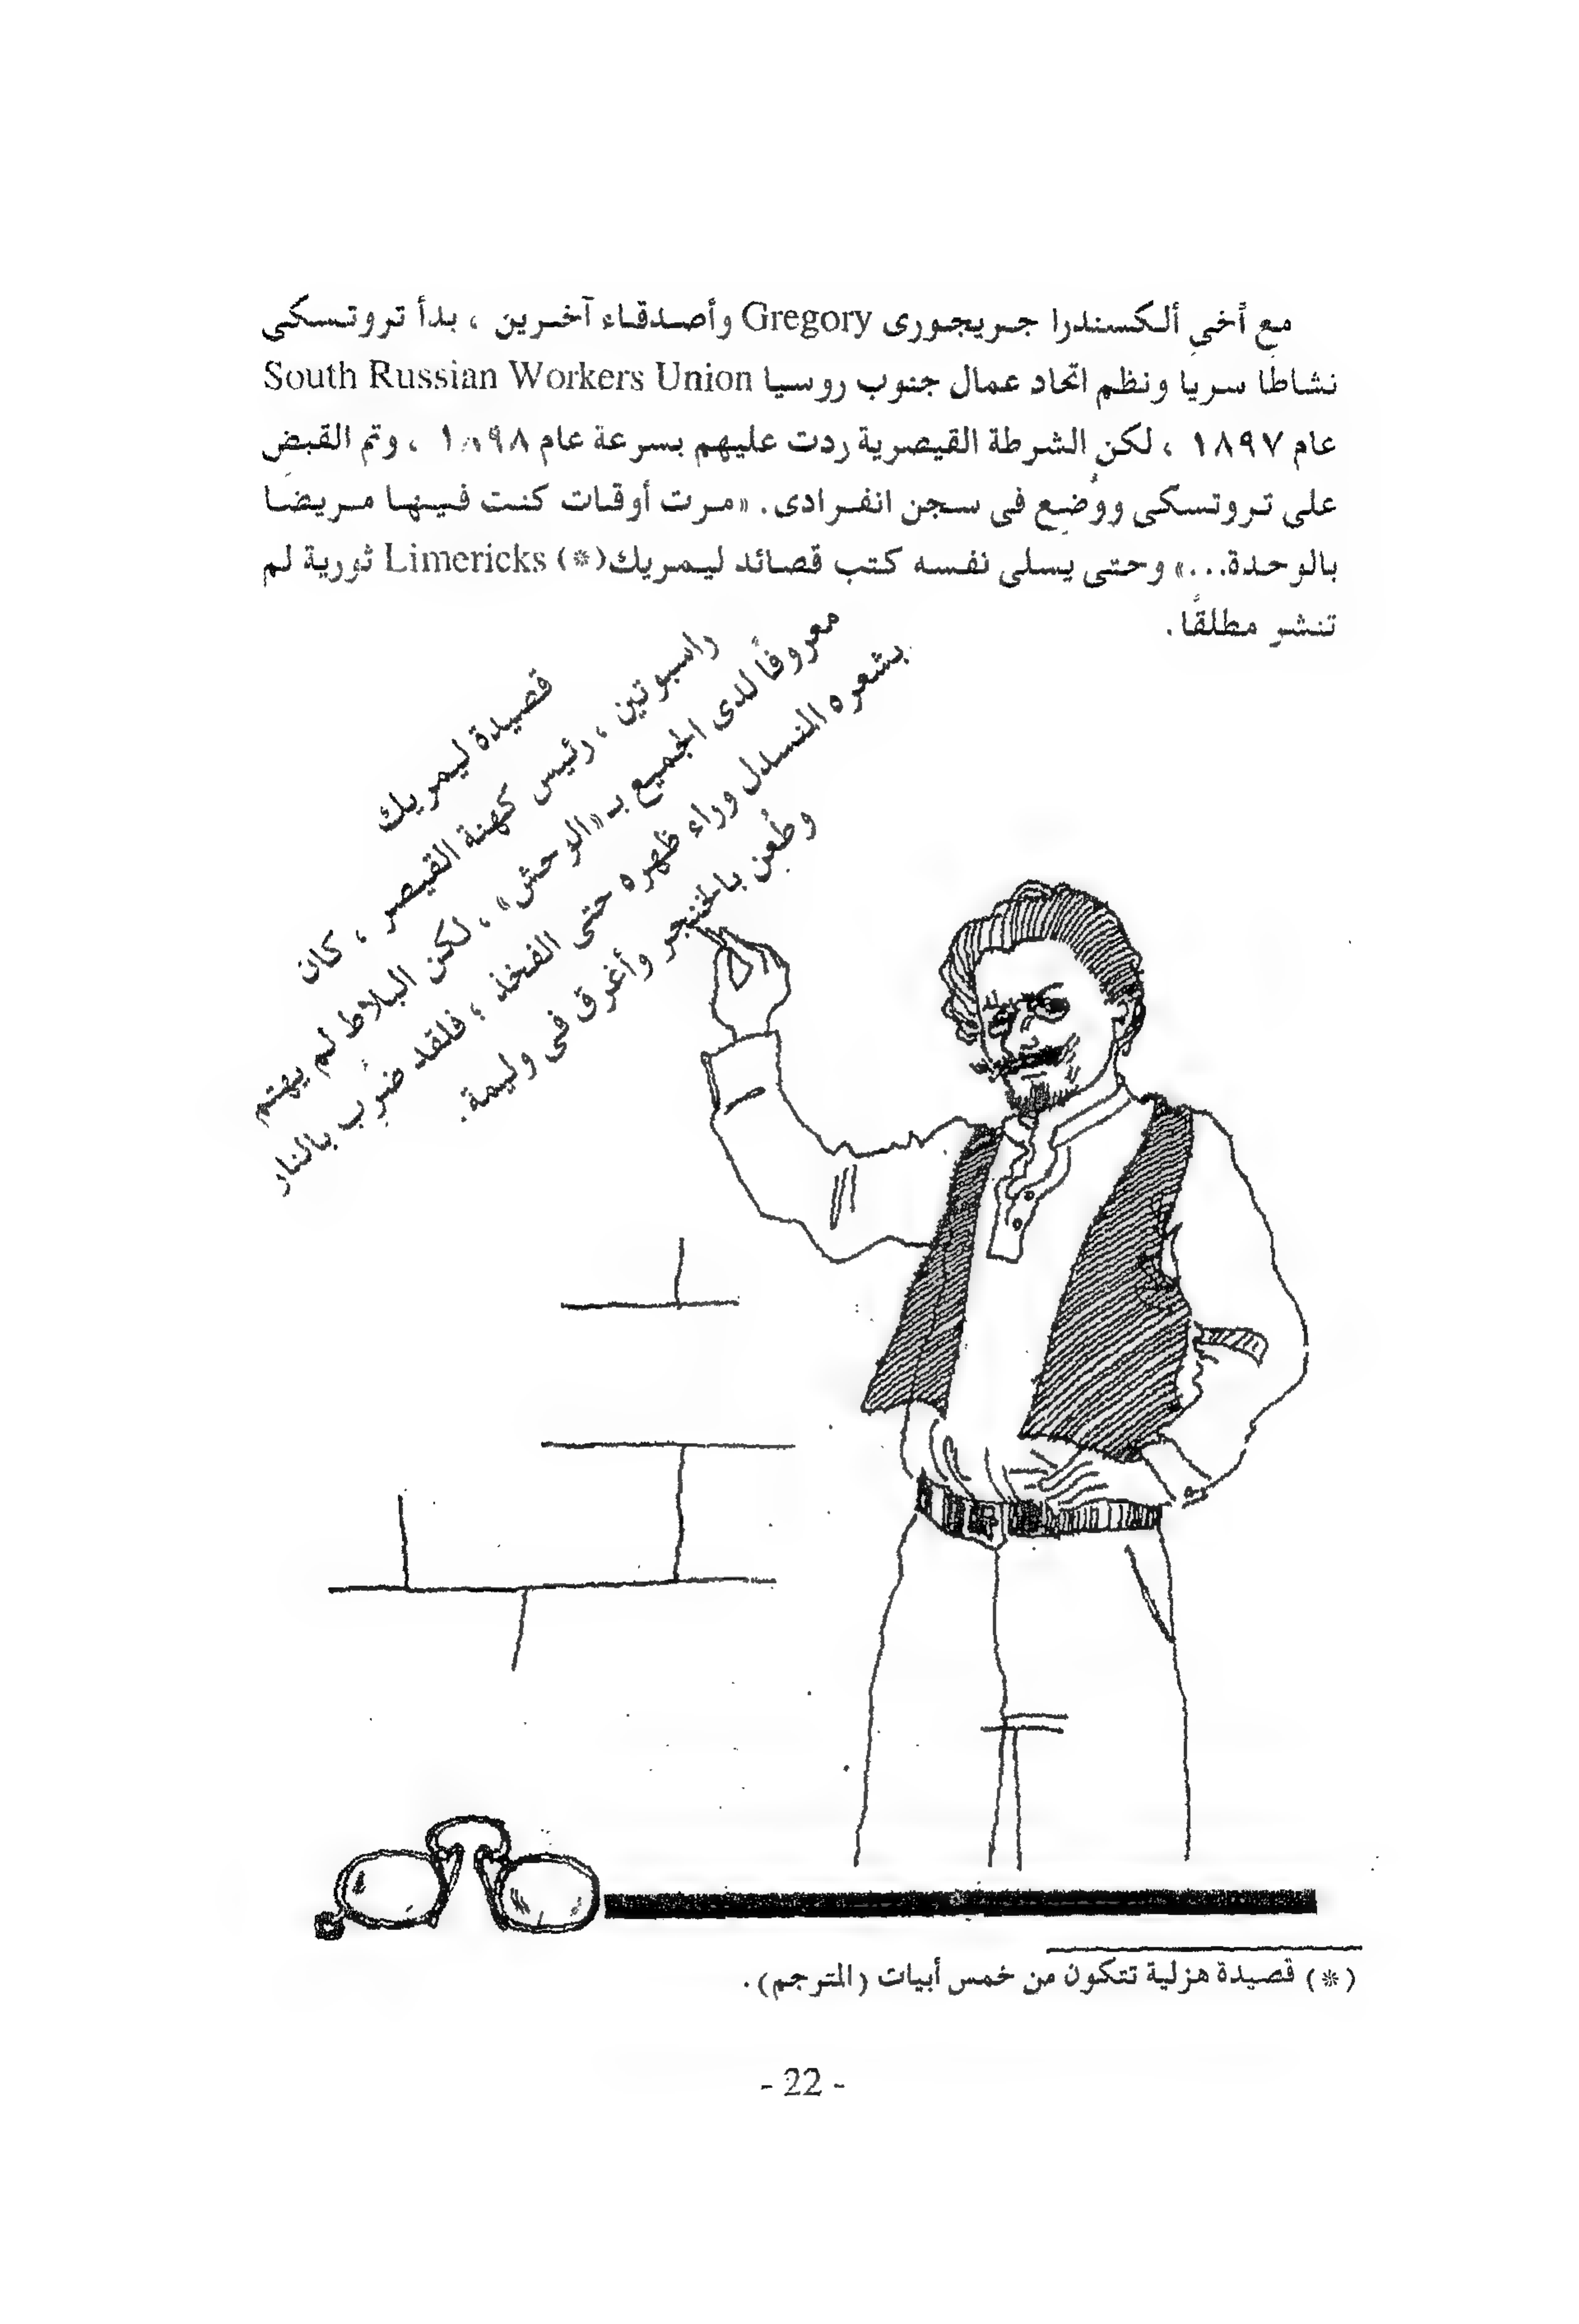 مع أخي ألكسندرا جريجورى Gregory وأصدقاء آخرين ، بدأ تروتسكي
نشاطًا سريا ونظم اتحاد عمال جنوب روسيا South Russian Workers Union
عام ١٨٩٧ ، لكن الشرطة القيصرية ردت عليهم بسرعة عام ١٨٩٨ ، وتم القبض
على تروتسكى ووُضع فى سجن انفرادى. «مرت أوقات كنت فيها مريضا
بالوحدة...» وحتى يسلى نفسه كتب قصائد ليمريك(*) Limericks ثورية لم
تنشر مطلقًا.
قصيدة ليمريك
راسبوتين ، رئيس كهنة القيصر ، كان
معروفًا لدى الجميع بـ «الوحش» ، لكن البلاط لم يهتم
بشعره المنسدل وراء ظهره حتى الفخذ ؛ فلقد ضُرب بالنار
وطُعن بالخنجر وأغرق فى وليمة.
(*) قصيدة هزلية تتكون من خمس أبيات (المترجم).
- 22 -